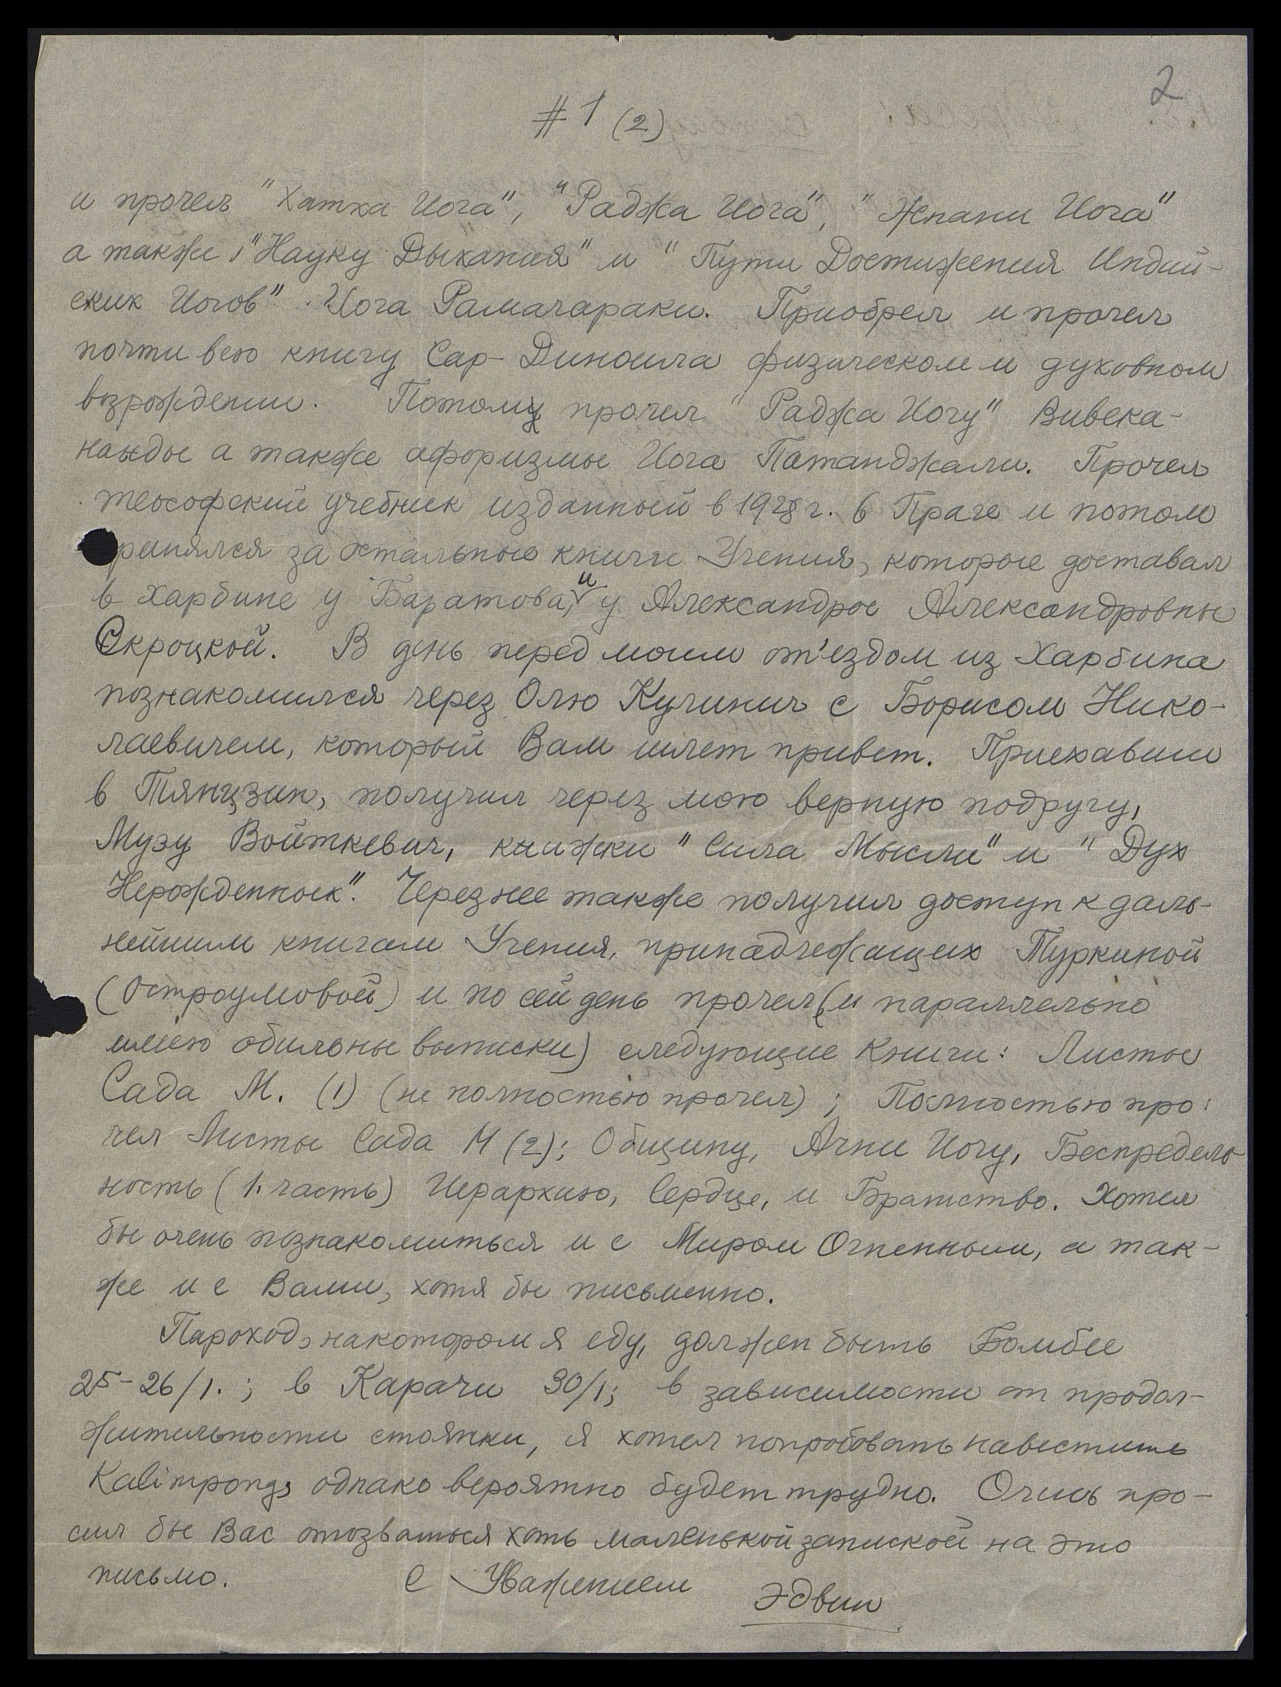 2
#1 (2)
и прочел "Хатха Иога", "Раджа Иога", "Жнани Иога"
а также "Науку Дыхания" и "Пути Достижения Индий-
ских Иогов" Иога Рамачараки. Приобрел и прочел
почти всю книгу Сар-Диноила физическом и духовном
возрождении. Потому прочел "Раджа Иогу" Вивека-
нанды а также афоризмы Иога Патанджали. Прочел
теософский учебник изданный в 1928 г. в Праге и потом
ринялся за остальные книги Учения, которые доставал
в Харбине у Баратова, и у Александры Александровны
Скроцкой. В день перед моим от'ездом из Харбина
познакомился через Олю Кулинич с Борисом Нико-
лаевичем, который Вам шлет привет. Приехавши
в Тянцзин, получил через мою верную подругу,
Музу Войткевич, книжки "Сила Мысли" и "Дух
Нерожденных". Через нее также получил доступ к даль-
нейшим книгам Учения, принадлежащих Туркиной
(Остроумовой) и по сей день прочел (и параллельно
имею обильны выписки) следующие книги: Листы
Сада М. (1) (не полностью прочел); Полностью про-
чел Листы Сада М (2); Общину, Агни Иогу, Беспредель-
ность (1. часть) Иерархию, Сердце, и Братство. Хотел
бы очень познакомиться и с Миром Огненным, а так-
же и с Вами, хотя бы письменно.
Пароход, на котором я еду, должен быть Бомбее
25-26/1.; в Карачи 30/1; в зависимости от продол-
жительности стоянки, я хотел попробовать навестить
Kalimpong, однако вероятно будет трудно. Очень про-
сил бы Вас отозваться хоть маленькой запиской на это
письмо. С Уважением
Эдвин